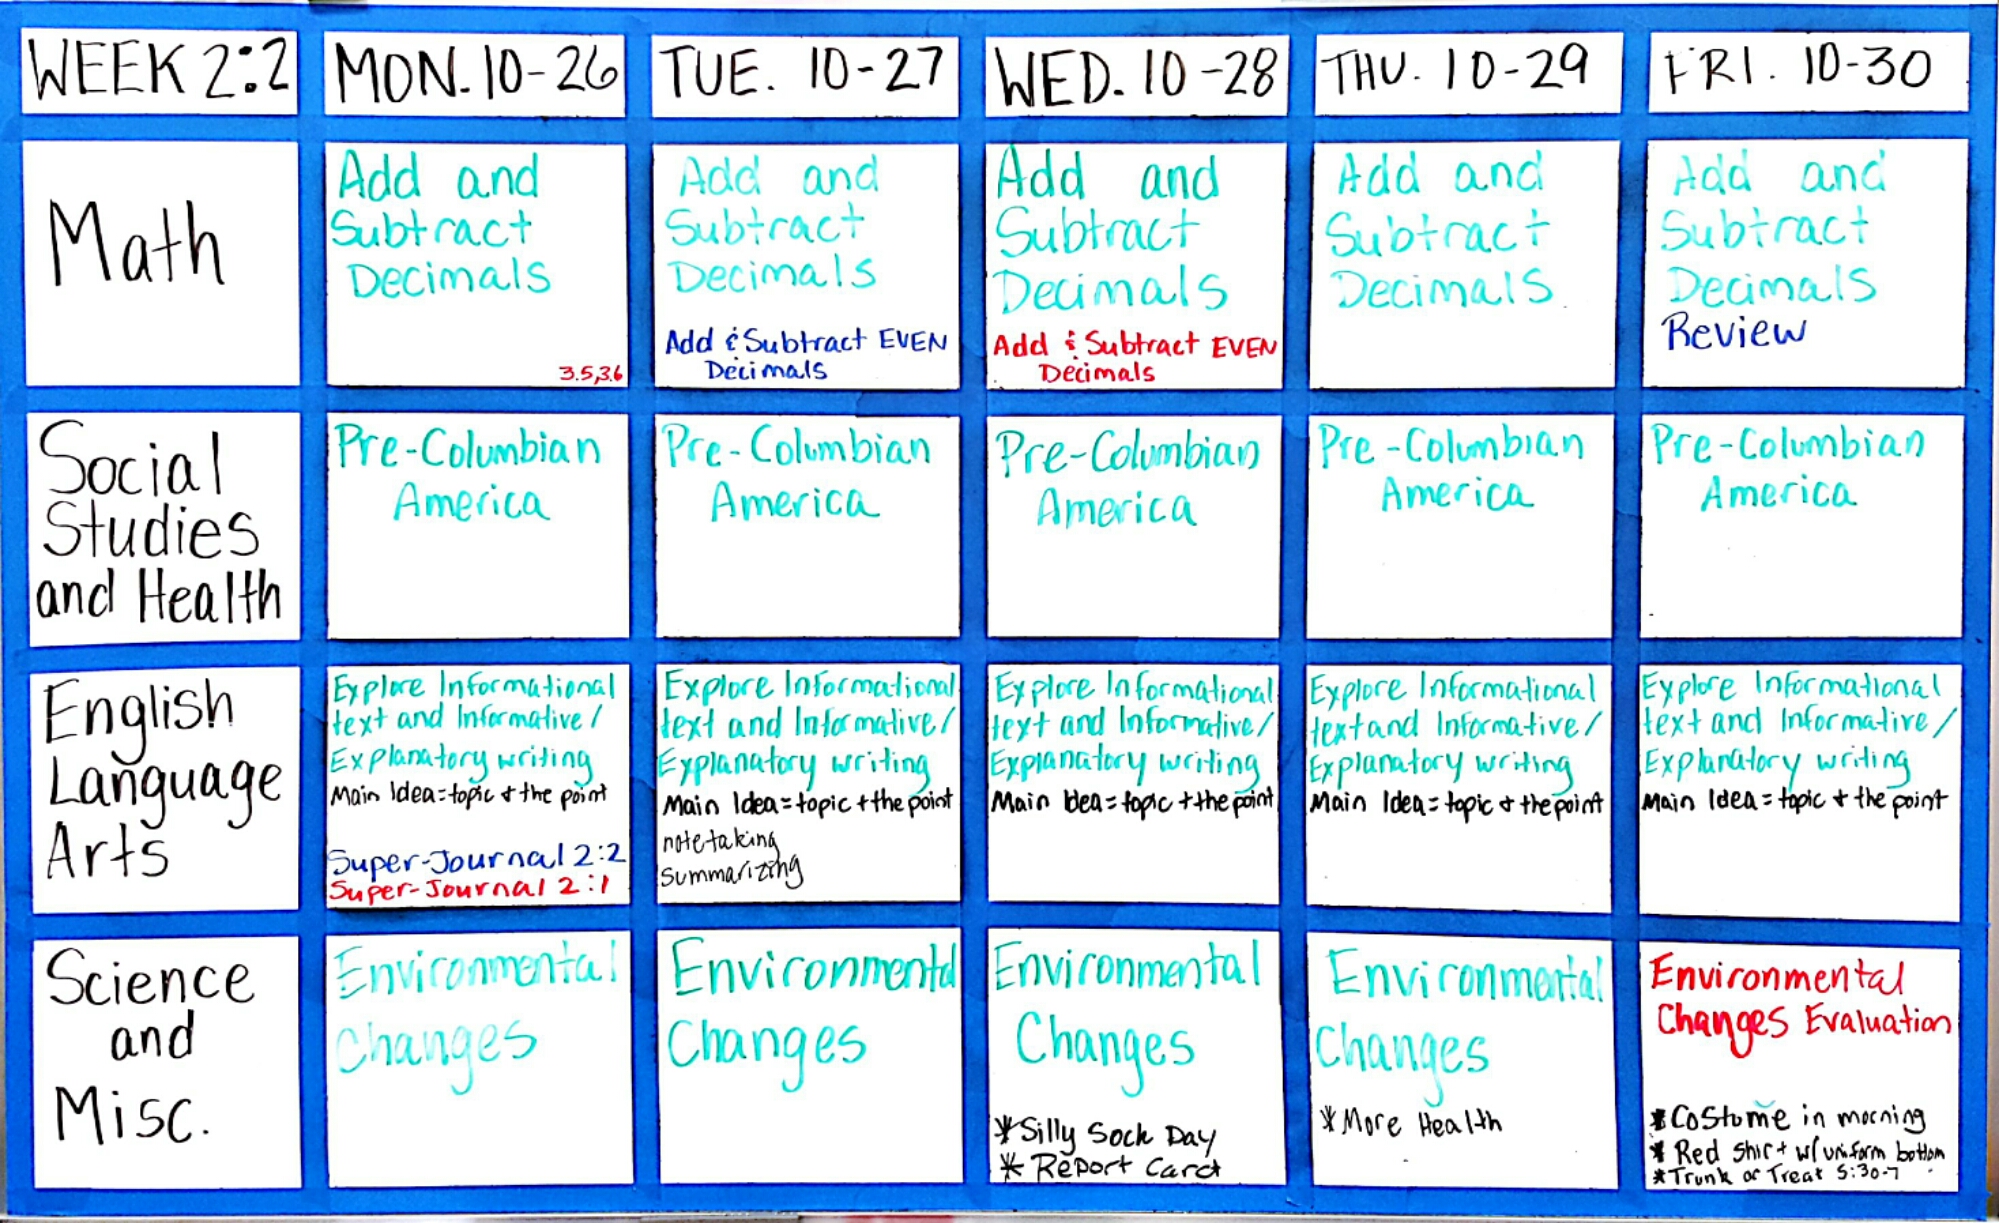 WEEK 2:2
MON. 10-26
TUE. 10-27
WED. 10-28
THU. 10-29
FRI. 10-30
Math
Add and
Subtract
Decimals
3.5,3.6
Add and
Subtract
Decimals
Add & Subtract EVEN
Decimals
Add and
Subtract
Decimals
Add & Subtract EVEN
Decimals
Add and
Subtract
Decimals
Add and
Subtract
Decimals
Review
Social
Studies
and Health
Pre-Columbian
America
Pre-Columbian
America
Pre-Columbian
America
Pre-Columbian
America
Pre-Columbian
America
English
Language
Arts
Explore Informational
text and Informative/
Explanatory writing
Main Idea=topic + the point
Super-Journal 2:2
Super-Journal 2:1
Explore Informational
text and Informative/
Explanatory writing
Main Idea=topic + the point
notetaking
Summarizing
Explore Informational
text and Informative/
Explanatory writing
Main Idea=topic + the point
Explore Informational
text and Informative/
Explanatory writing
Main Idea=topic + the point
Explore Informational
text and Informative/
Explanatory writing
Main Idea=topic + the point
Science
and
Misc.
Environmental
Changes
Environmental
Changes
Environmental
Changes
*Silly Sock Day
* Report Card
Environmental
Changes
*More Health
Environmental
Changes Evaluation
*Costume in morning
* Red Shirt w/uniform bottom
*Trunk or Treat 5:30-7